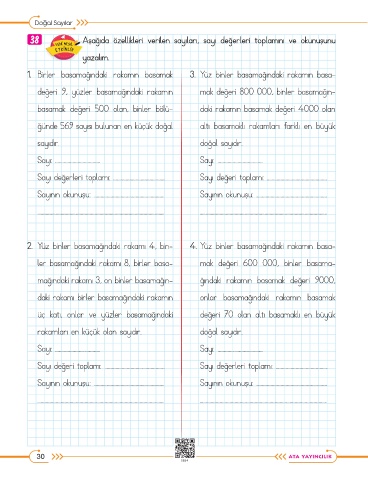 Doğal Sayılar
38
Aşağıda özellikleri verilen sayıları, sayı değerleri toplamını ve okunuşunu
yazalım.
1. Birler basamağındaki rakamın basamak
değeri 9, yüzler basamağındaki rakamın
basamak değeri 500 olan, binler bölü-
ğünde 569 sayısı bulunan en küçük doğal
sayıdır.
Sayı:
Sayı değerleri toplamı:
Sayının okunuşu:
2. Yüz binler basamağındaki rakamı 4, bin-
ler basamağındaki rakamı 8, birler basa-
mağındaki rakamı 3, on binler basamağın-
daki rakamı birler basamağındaki rakamın
üç katı, onlar ve yüzler basamağındaki
rakamları en küçük olan sayıdır.
Sayı:
Sayı değeri toplamı:
Sayının okunuşu:
3. Yüz binler basamağındaki rakamın basa-
mak değeri 800 000, binler basamağın-
daki rakamın basamak değeri 4000 olan
altı basamaklı rakamları farklı en büyük
doğal sayıdır.
Sayı:
Sayı değeri toplamı:
Sayının okunuşu:
4. Yüz binler basamağındaki rakamın basa-
mak değeri 600 000, binler basama-
ğındaki rakamın basamak değeri 9000,
onlar basamağındaki rakamın basamak
değeri 70 olan altı basamaklı en büyük
doğal sayıdır.
Sayı:
Sayı değerleri toplamı:
Sayının okunuşu:
30
ATA YAYINCILIK